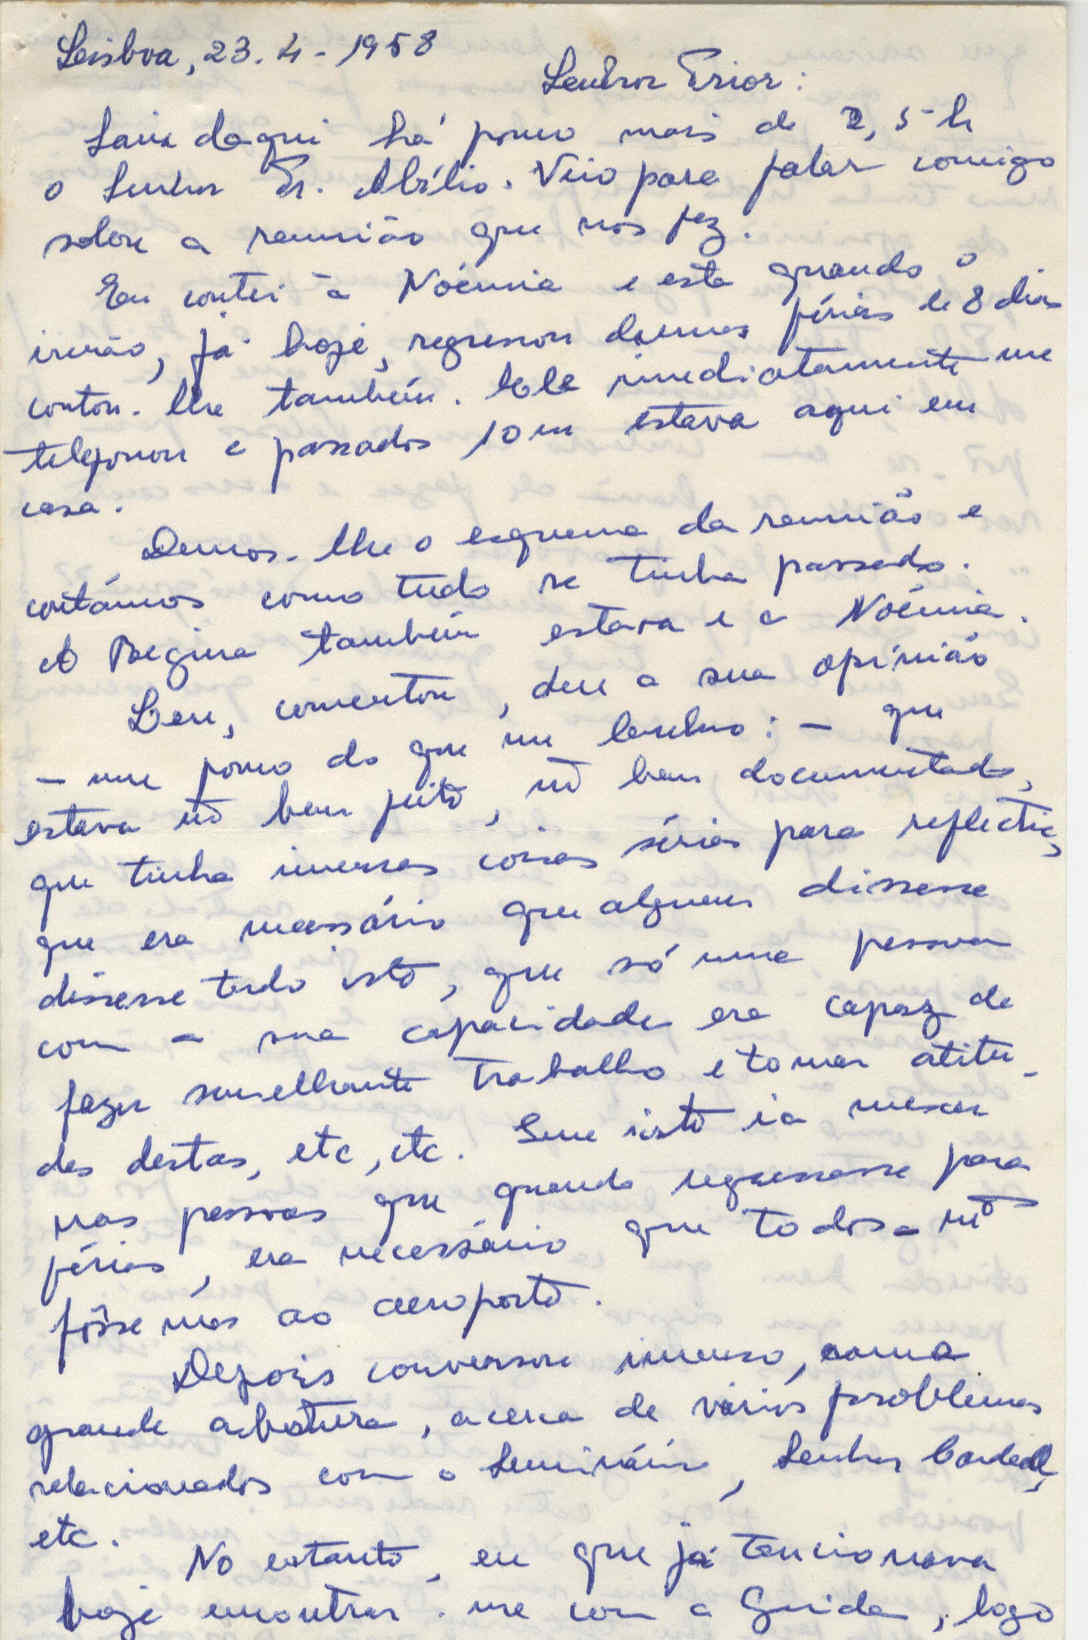 Lisboa, 23.4-1958
Senhor Prior:
Saiu daqui há pouco mais de 2,5h
o Senhor Pr. Abílio. Veio para falar comigo
sobre a reunião que nos fez.
Eu contei à Noémia e esta quando o
irmão, já hoje, regressou dumas férias de 8 dias
contou-lhe também. Ele imediatamente me
telefonou e passados 10m estava aqui em
casa.
Demos-lhe o esquema da reunião e
contámos como tudo se tinha passado.
A Regina também estava e a Noémia.
Leu, comentou, deu a sua opinião
- um pouco do que me lembro: - que
estava mto bem feito, mto bem documentado,
que tinha imensas coisas sérias para reflectir,
que era necessário que alguem dissesse
dissesse tudo isto, que só uma pessoa
com a sua capacidade era capaz de
fazer semelhante trabalho e tomar atitu-
des destas, etc, etc. Sem isto ia mexer
nas pessoas que quando regressasse para
férias, era necessário que todos - mto
fôssemos ao aeroporto.
Depois conversou imenso, numa
grande abertura, acerca de vários problemas
relacionados com o Seminário, Senhor Cardeal,
etc.
No entanto, eu que já tencionava
hoje encontrar-me com a Guida, logo